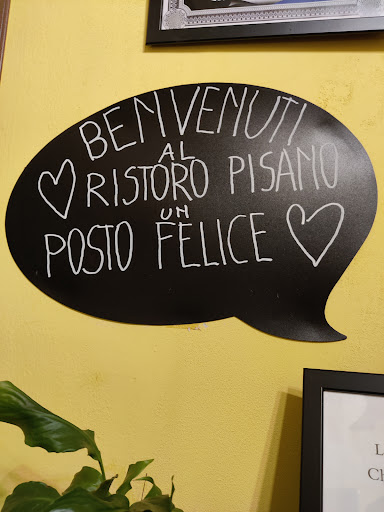 BENVENUTI
AL
♡ RISTORO PISANO
UN
POSTO FELICE ♡